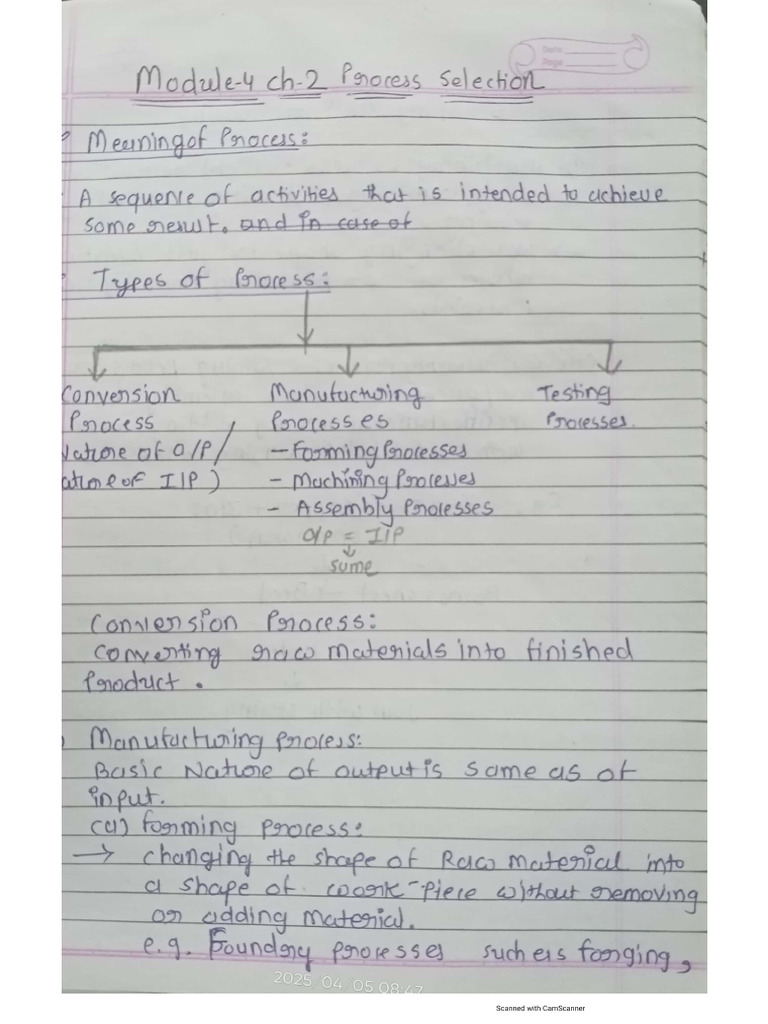 Date
Page
Module-4 ch-2 Process Selection
Meaning of Process:
A sequence of activities that is intended to achieve
some result. and in case of
Types of Process:
Conversion Manufacturing Testing
Process Processes Processes.
Nature of O/P / - Forming Processes
ature of I/P ) - Machining Processes
- Assembly Processes
O/P = I/P
same
Conversion Process:
Converting raw materials into finished
Product.
Manufacturing Process:
Basic Nature of output is same as of
input.
(a) forming process:
→ changing the shape of Raw material into
a shape of work-piece without removing
or adding material.
e.g. Foundry processes such as forging,
2025 04 05 08:47
Scanned with CamScanner